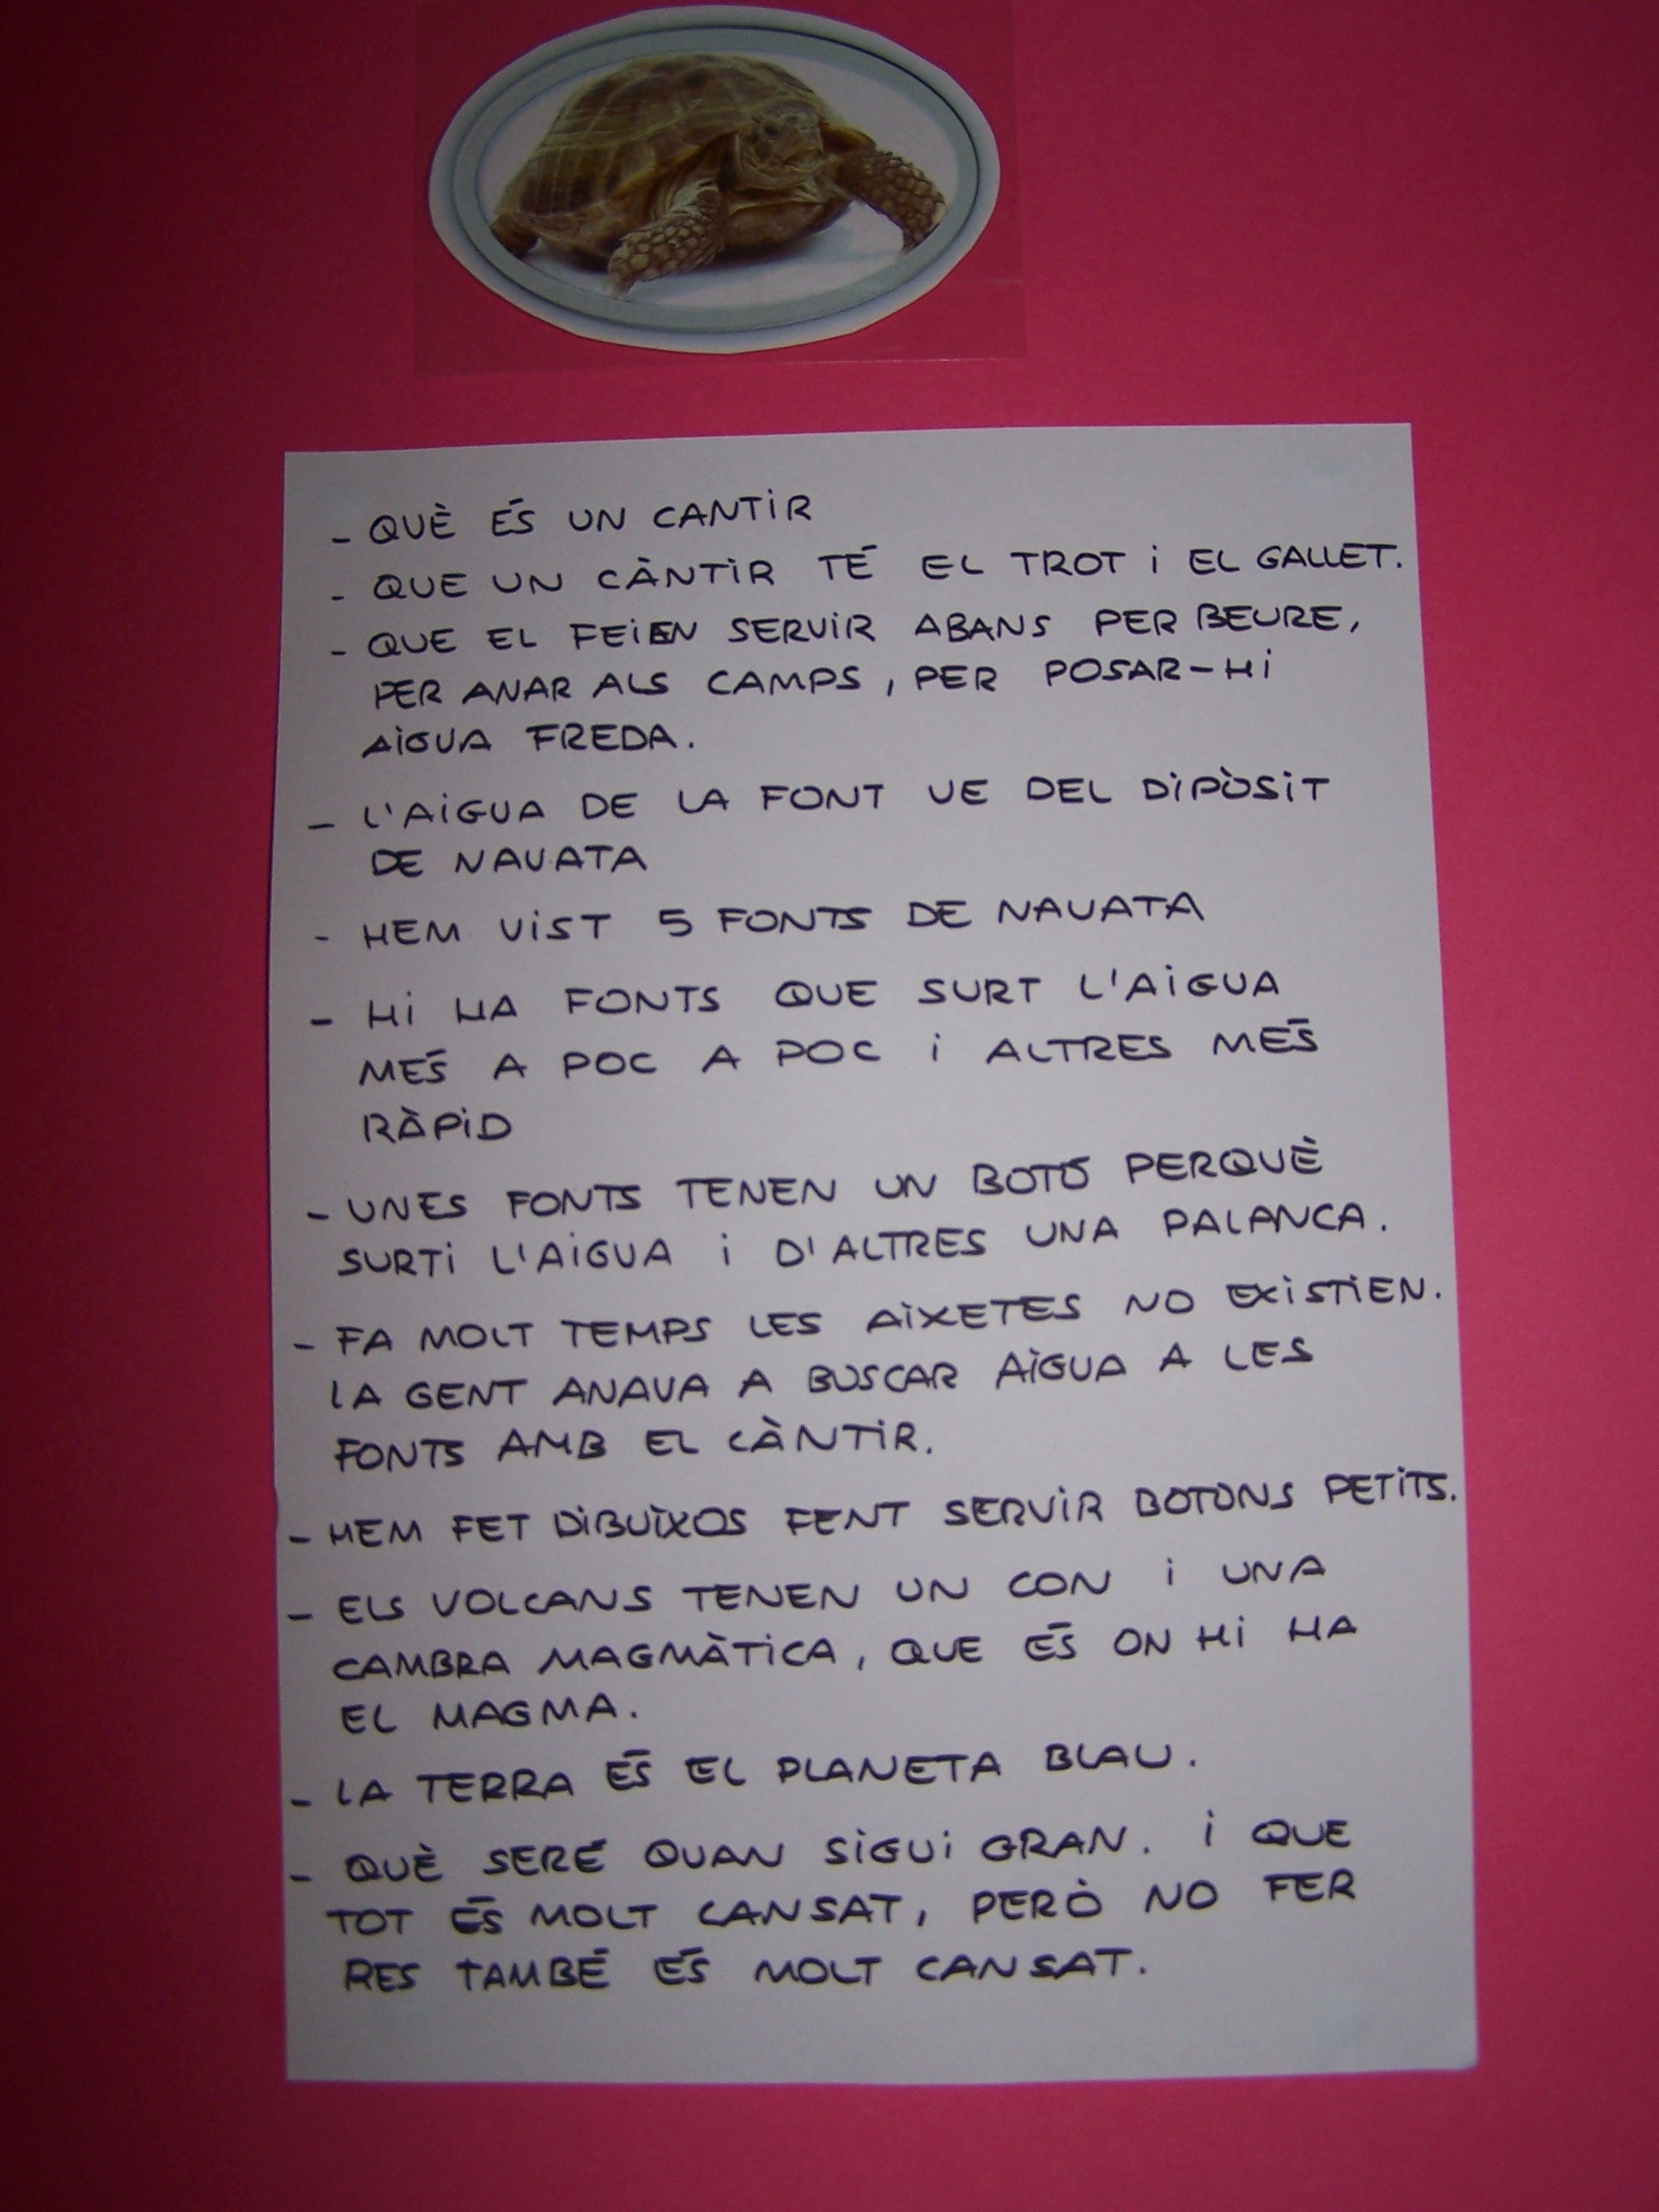 - QUÈ ÉS UN CANTIR
- QUE UN CÀNTIR TÉ EL TROT i EL GALLET.
- QUE EL FEIEN SERVIR ABANS PER BEURE,
PER ANAR ALS CAMPS, PER POSAR-HI
AIGUA FREDA.
- L'AIGUA DE LA FONT VE DEL DIPÒSIT
DE NAVATA
- HEM VIST 5 FONTS DE NAVATA
- HI HA FONTS QUE SURT L'AIGUA
MÉS A POC A POC i ALTRES MÉS
RÀPID
- UNES FONTS TENEN UN BOTÓ PERQUÈ
SURTI L'AIGUA i D'ALTRES UNA PALANCA.
- FA MOLT TEMPS LES AIXETES NO EXISTIEN.
LA GENT ANAVA A BUSCAR AIGUA A LES
FONTS AMB EL CÀNTIR.
- HEM FET DIBUIXOS FENT SERVIR BOTONS PETITS.
- ELS VOLCANS TENEN UN CON i UNA
CAMBRA MAGMÀTICA, QUE ÉS ON HI HA
EL MAGMA.
- LA TERRA ÉS EL PLANETA BLAU.
- QUÈ SERÉ QUAN SIGUI GRAN. i QUE
TOT ÉS MOLT CANSAT, PERÒ NO FER
RES TAMBÉ ÉS MOLT CANSAT.